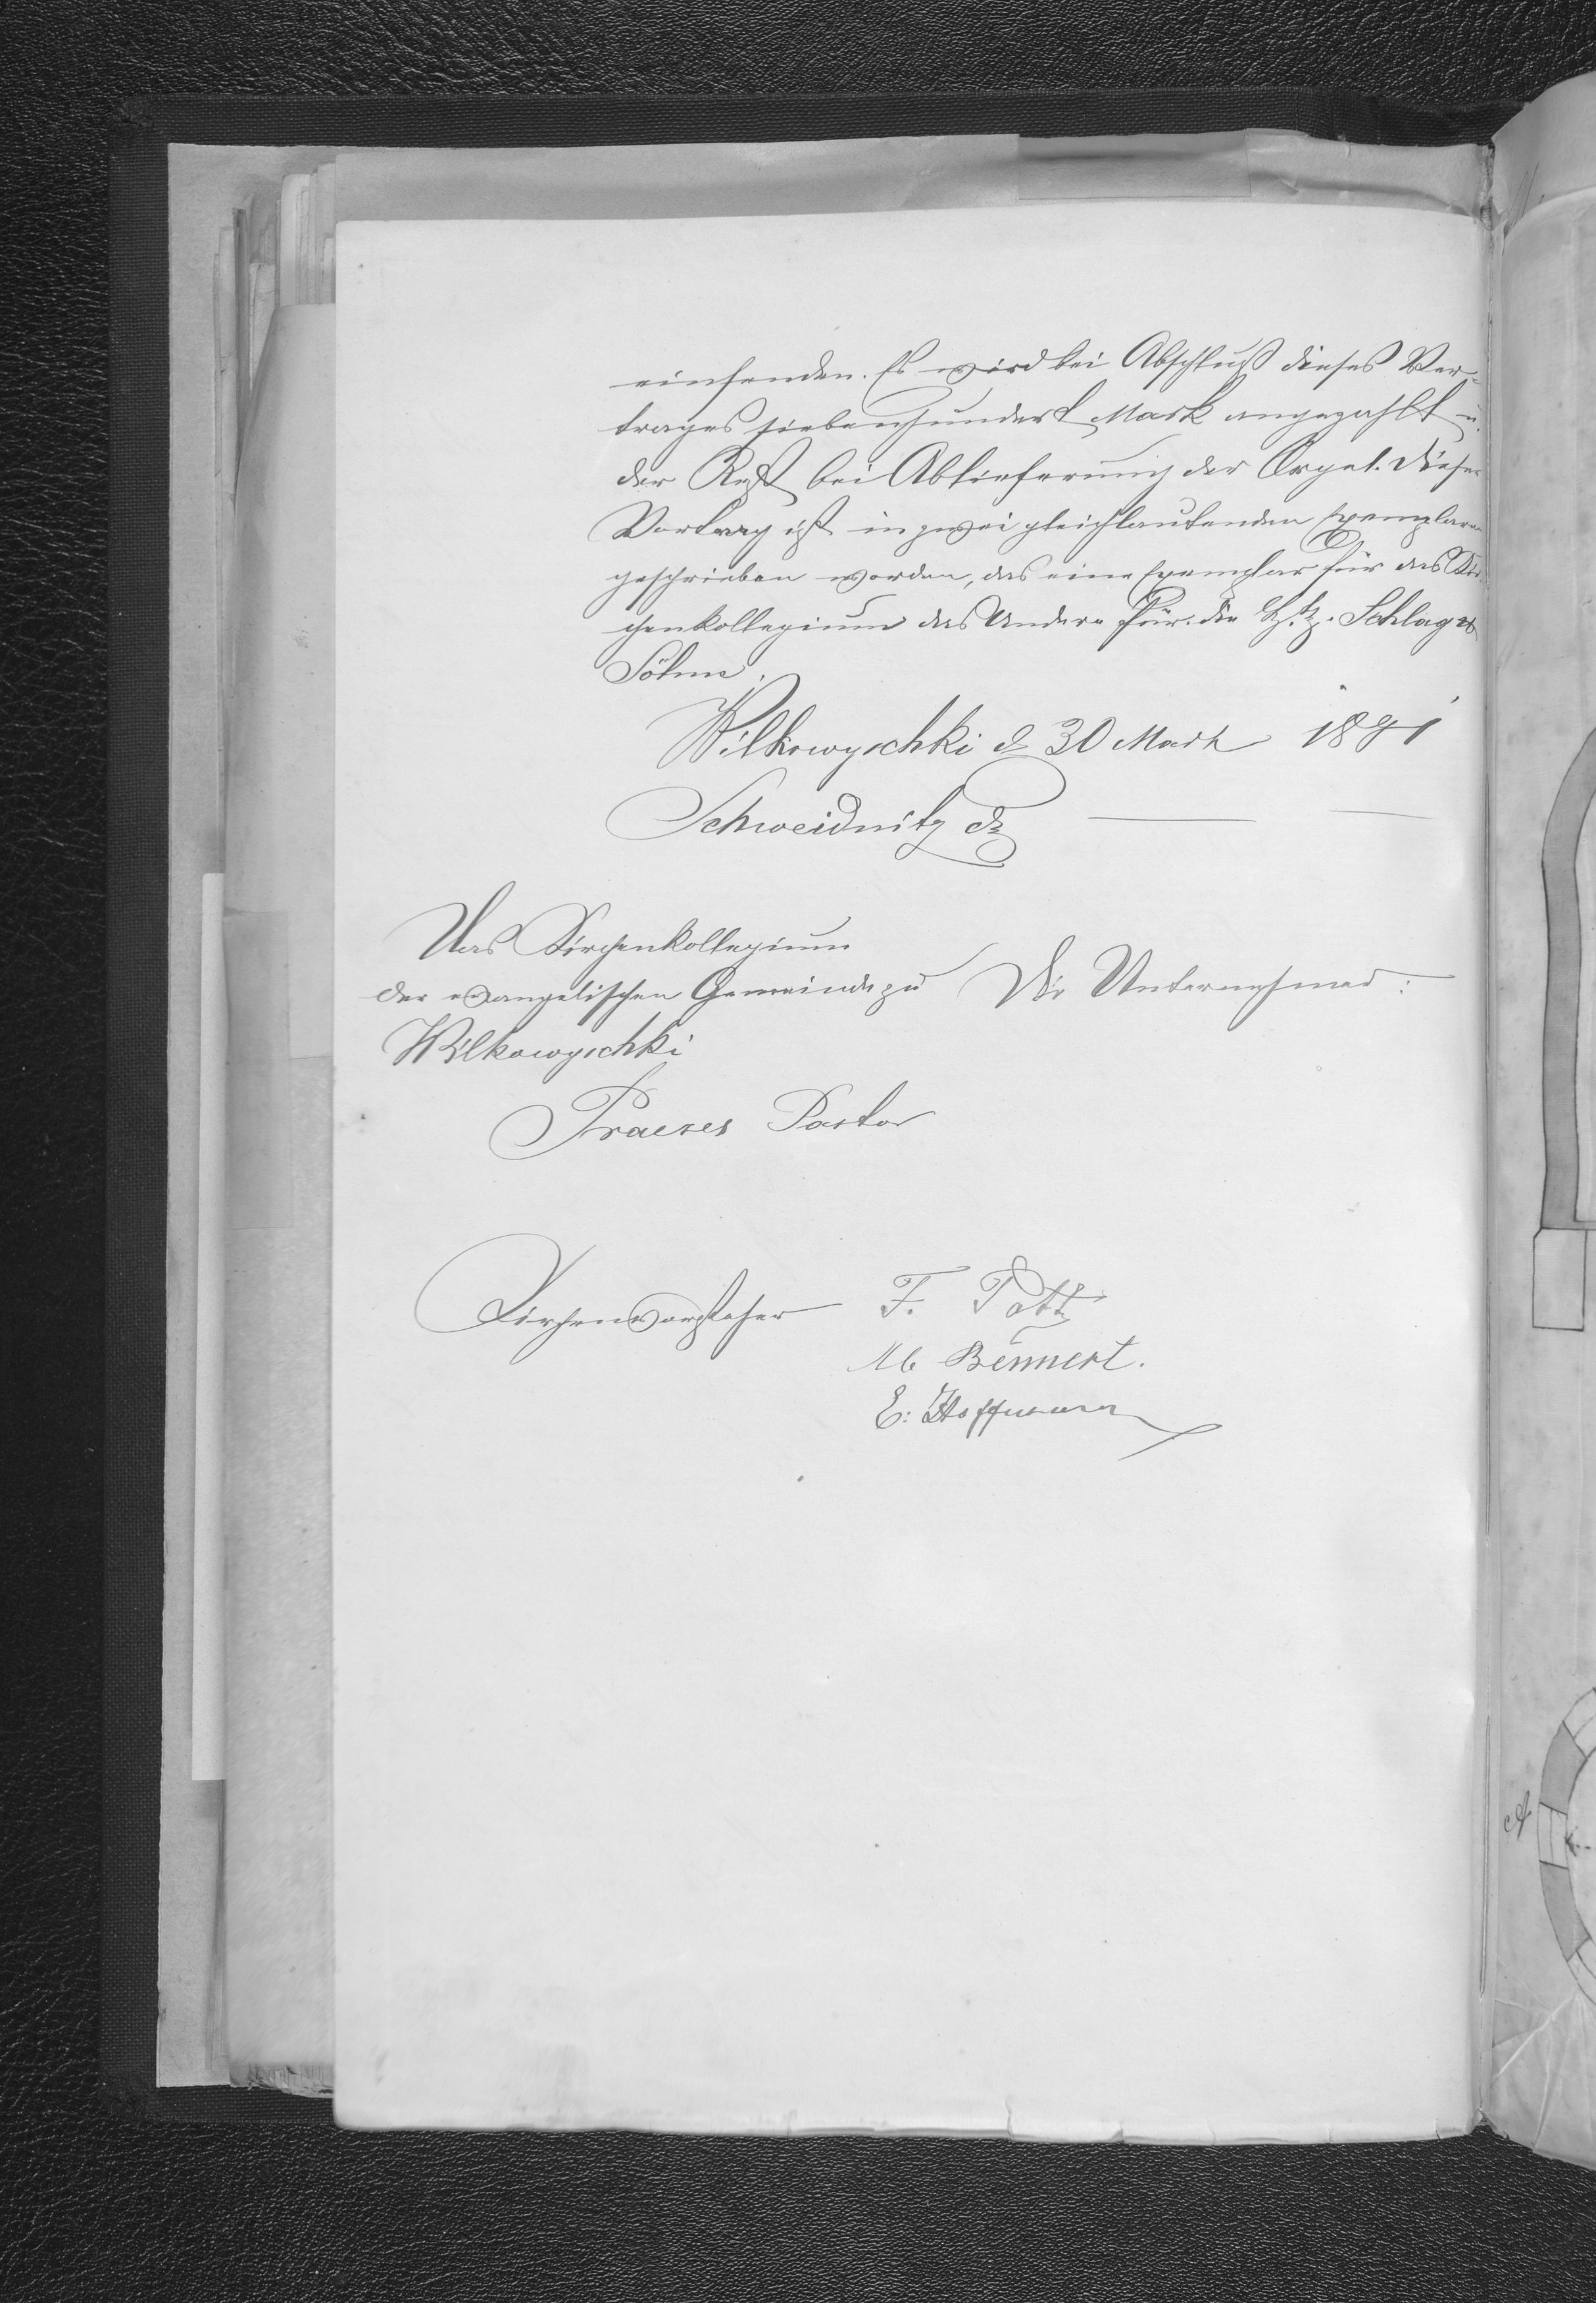 einsenden. Es wird bei Abschluß dieses Ver=
trages siebenhundert Mark angezahlt u.
der Rest bei Ablieferung der Orgel. Dieser
Vertrag ist in zwei gleichlautenden Exemplaren
geschrieben worden, das eine Exemplar für das Kir
chenkollegium das Andere für die Schlag u
Söhne.
Wilkowyschki d 30 März 1891
Schweidnitz d
Das Kirchenkollegium
der evangelischen Gemeinde zu
Wilkowyschki
Die Unternehmer:
Praeses Pastor
Kirchenvorsteher F. Patt
M. Bennert.
E. Hoffmann
A